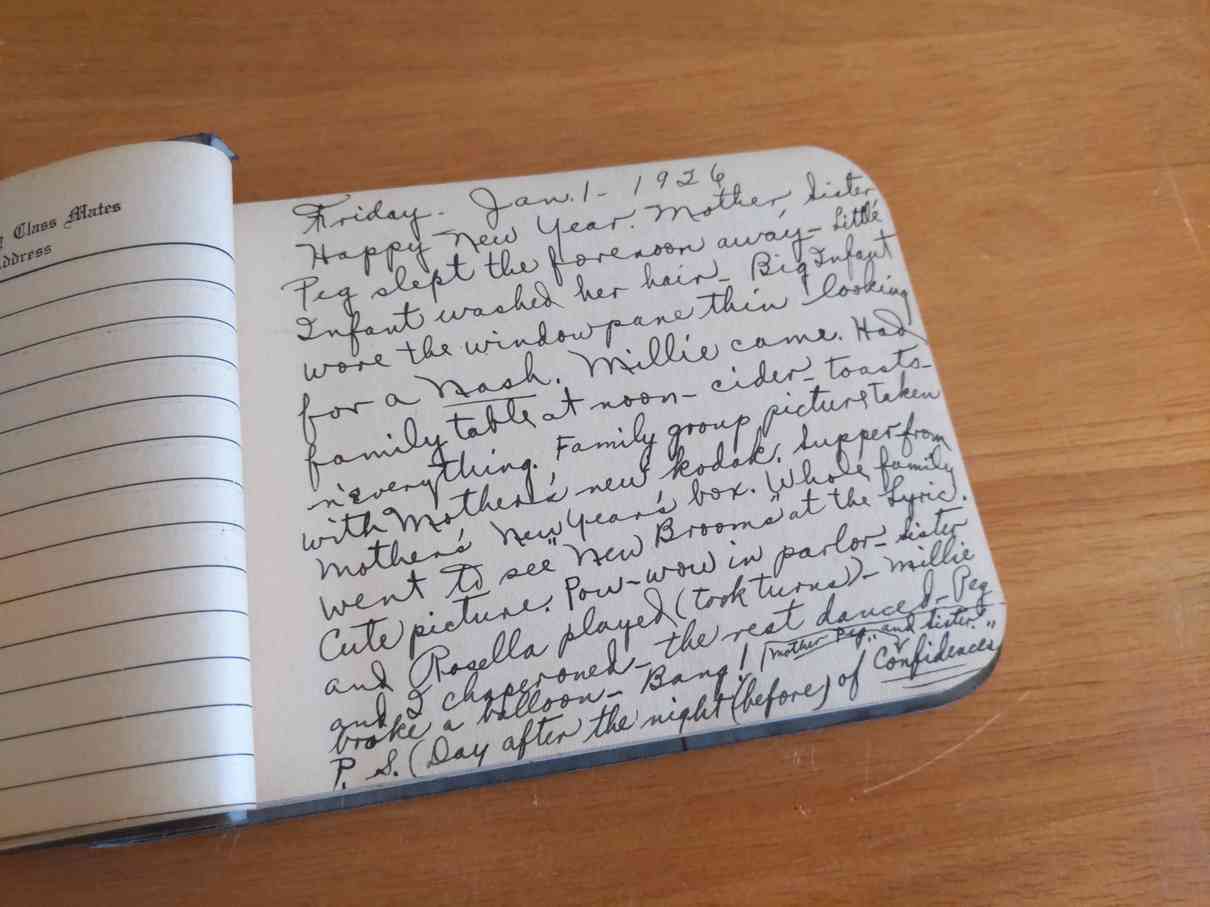 Class Mates
ddress
Friday - Jan. 1 - 1926
Happy New Year. Mother, Sister,
Peg slept the forenoon away - Little
Infant washed her hair - Big Infant
wore the window pane thin looking
for a Nash. Millie came. Had
family table at noon - cider - toasts -
n'everything. Family group picture taken
with Mother's new kodak. Supper from
Mother's New Year's box. Whole family
went to see "New Brooms" at the Lyric.
Cute picture. Pow-wow in parlor - Sister
and Rosella played (took turns) - Millie
and I chaperoned - the rest danced - Peg
broke a balloon - Bang! Mother Peg "and Sister"
P. S. (Day after the night (before) of Confidences